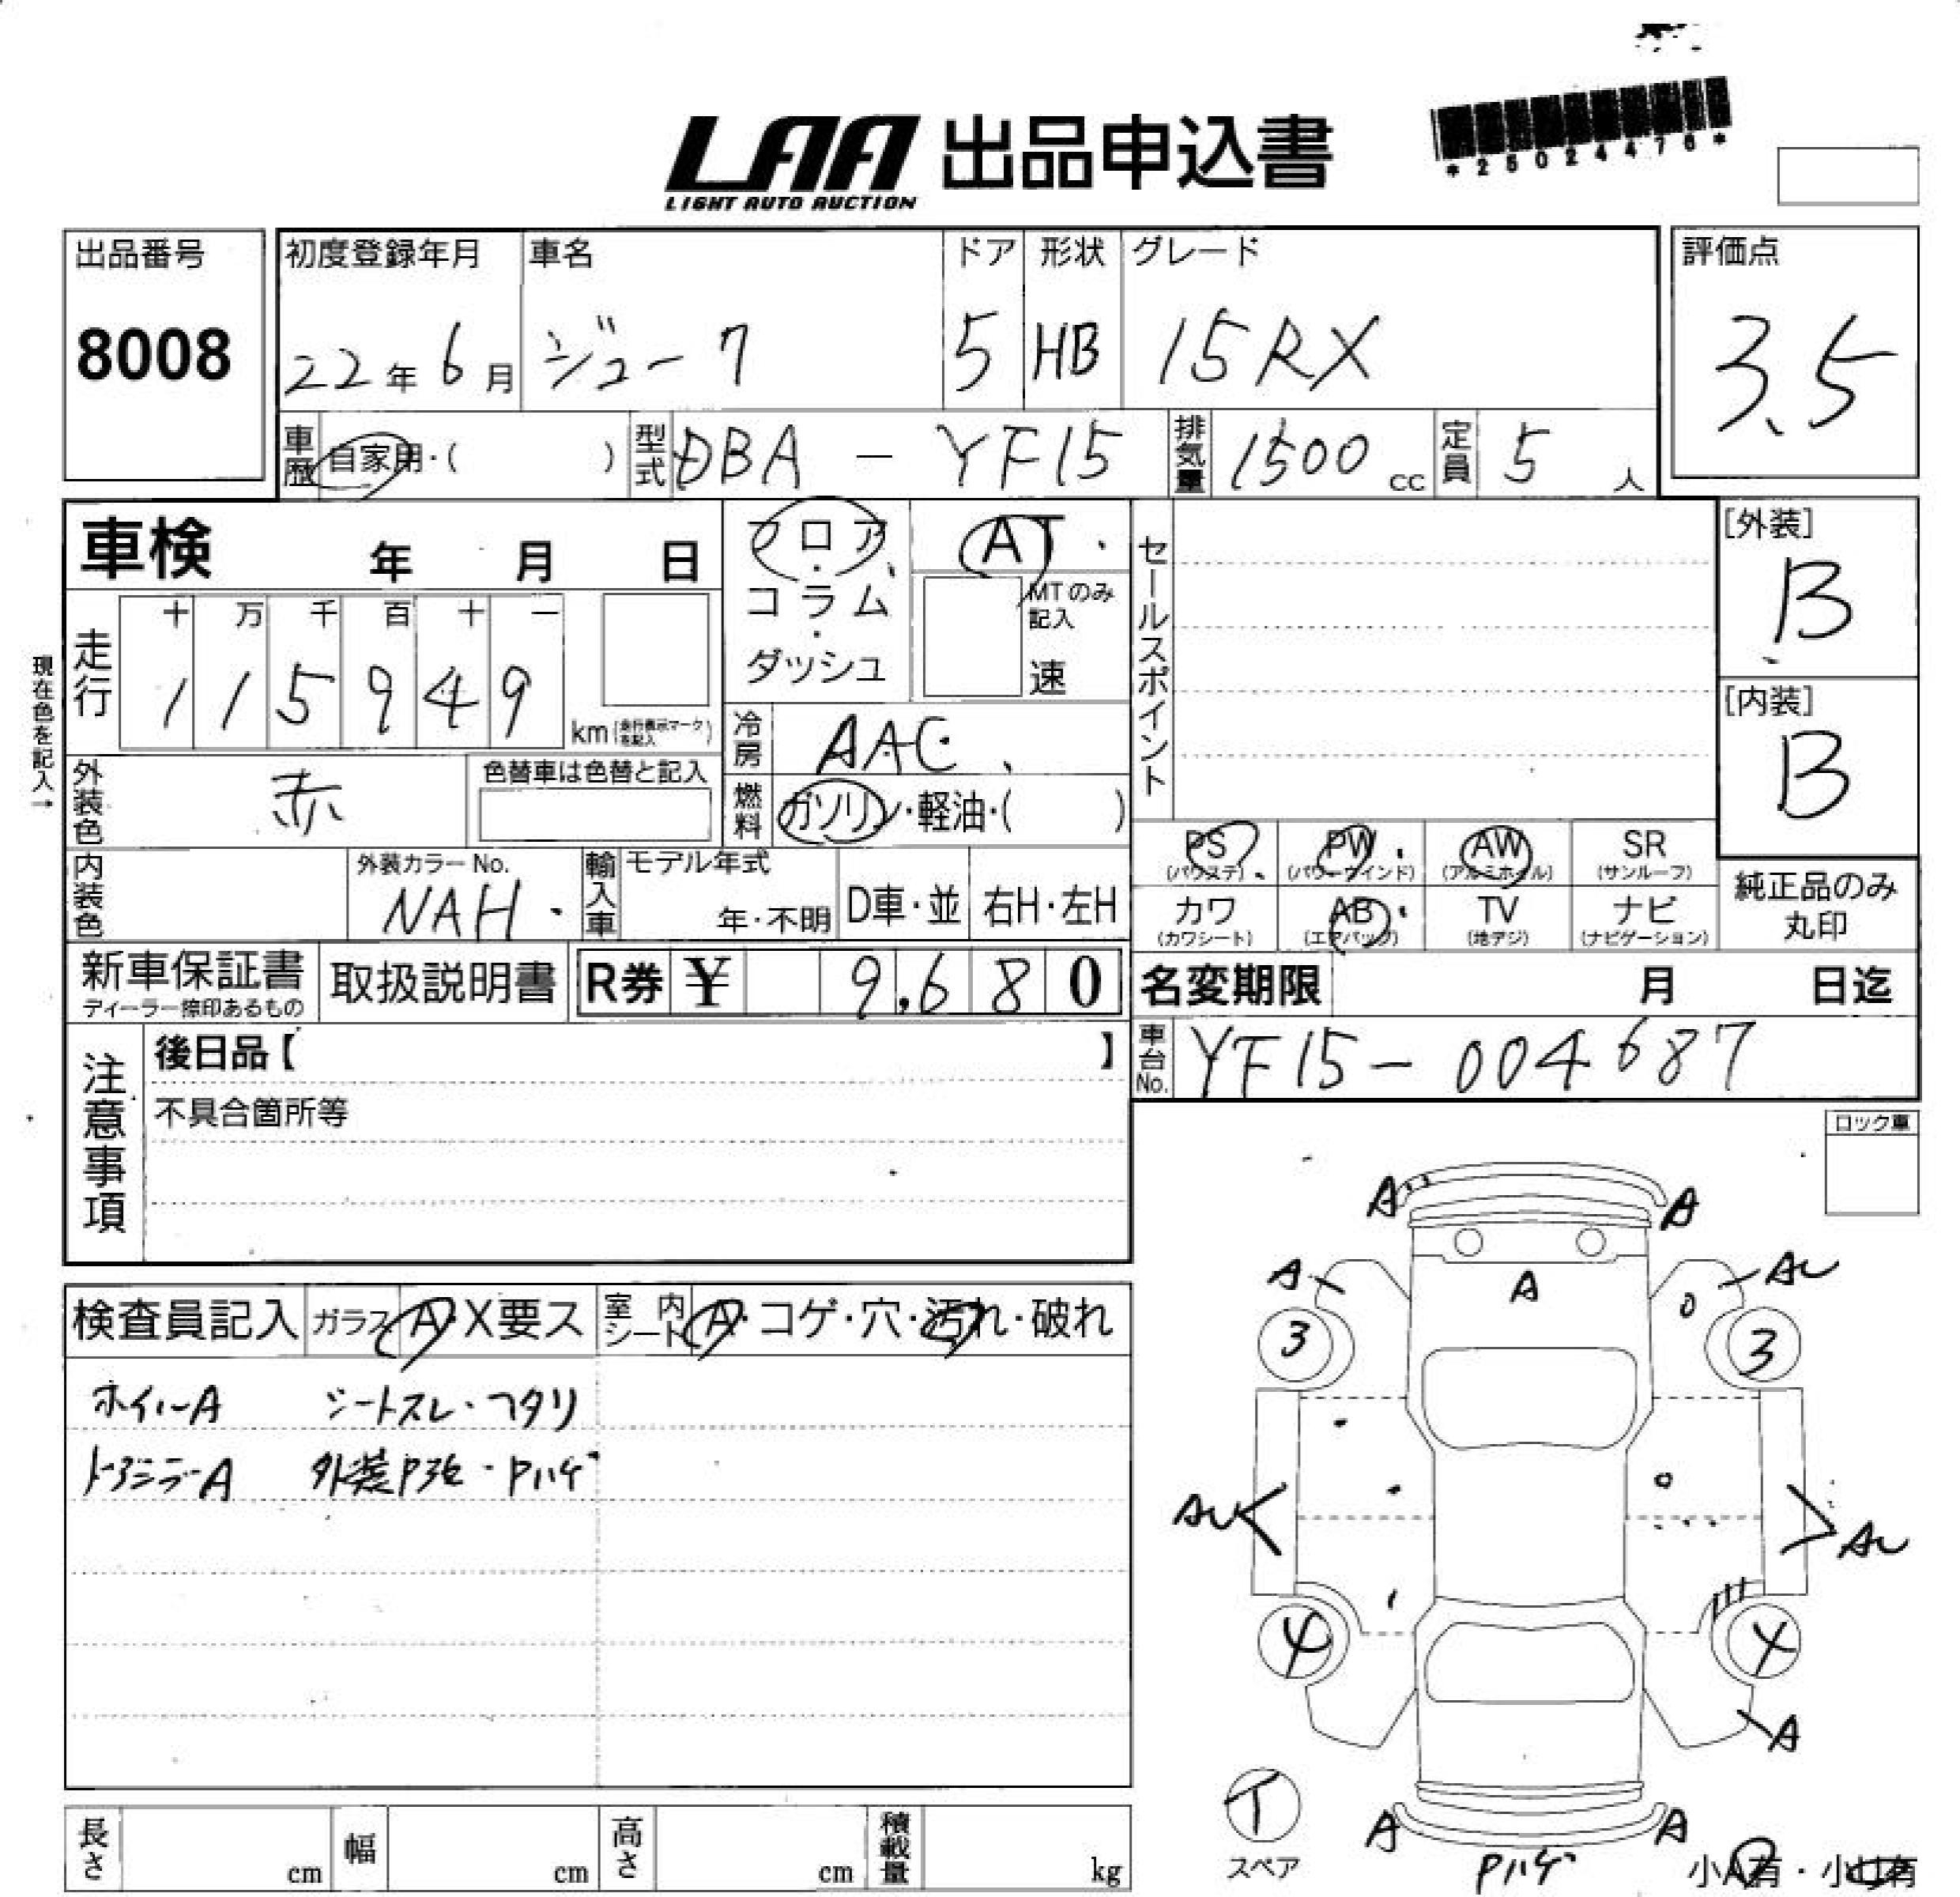 *25024476*
LAA 出品申込書
LIGHT AUTO AUCTION
出品番号
8008
初度登録年月
22年 6月
車名
ジューク
ドア
5
形状
HB
グレード
15RX
評価点
3.5
車歴 自家用・( )
型式 DBA - YF15
排気量 1500 cc
定員 5 人
車検 年 月 日
フロア・コラム・ダッシュ
AT
MTのみ記入
速
セールスポイント
[外装]
B
[内装]
B
現在色を記入→
走行
十 万 千 百 十 一
1 1 5 9 4 9
km(走行表示マークを記入)
冷房 AAC
燃料 ガソリン・軽油・( )
外装色 赤
色替車は色替と記入
内装色
外装カラーNo.
NAH
輸入車
モデル年式
年・不明
D車・並
右H・左H
PS
(パワステ)
PW
(パワーウインド)
AW
(アルミホイル)
SR
(サンルーフ)
カワ
(カワシート)
AB
(エアバッグ)
TV
(地デジ)
ナビ
(ナビゲーション)
純正品のみ
丸印
新車保証書
ディーラー捺印あるもの
取扱説明書
R券 ¥ 9,680
名変期限 月 日迄
車台No. YF15-004687
注意事項
後日品【 】
不具合箇所等
ロック車
検査員記入
ガラス A・X要ス
室内シート A・コゲ・穴・汚れ・破れ
ホイルA シートスレ・ヘタリ
外装P・Pハゲ
A A
A A AU
3 3
AU AU
4 4
A
T
スペア
A A
Pハゲ
小A有・小U有
長さ cm
幅 cm
高さ cm
積載量 kg